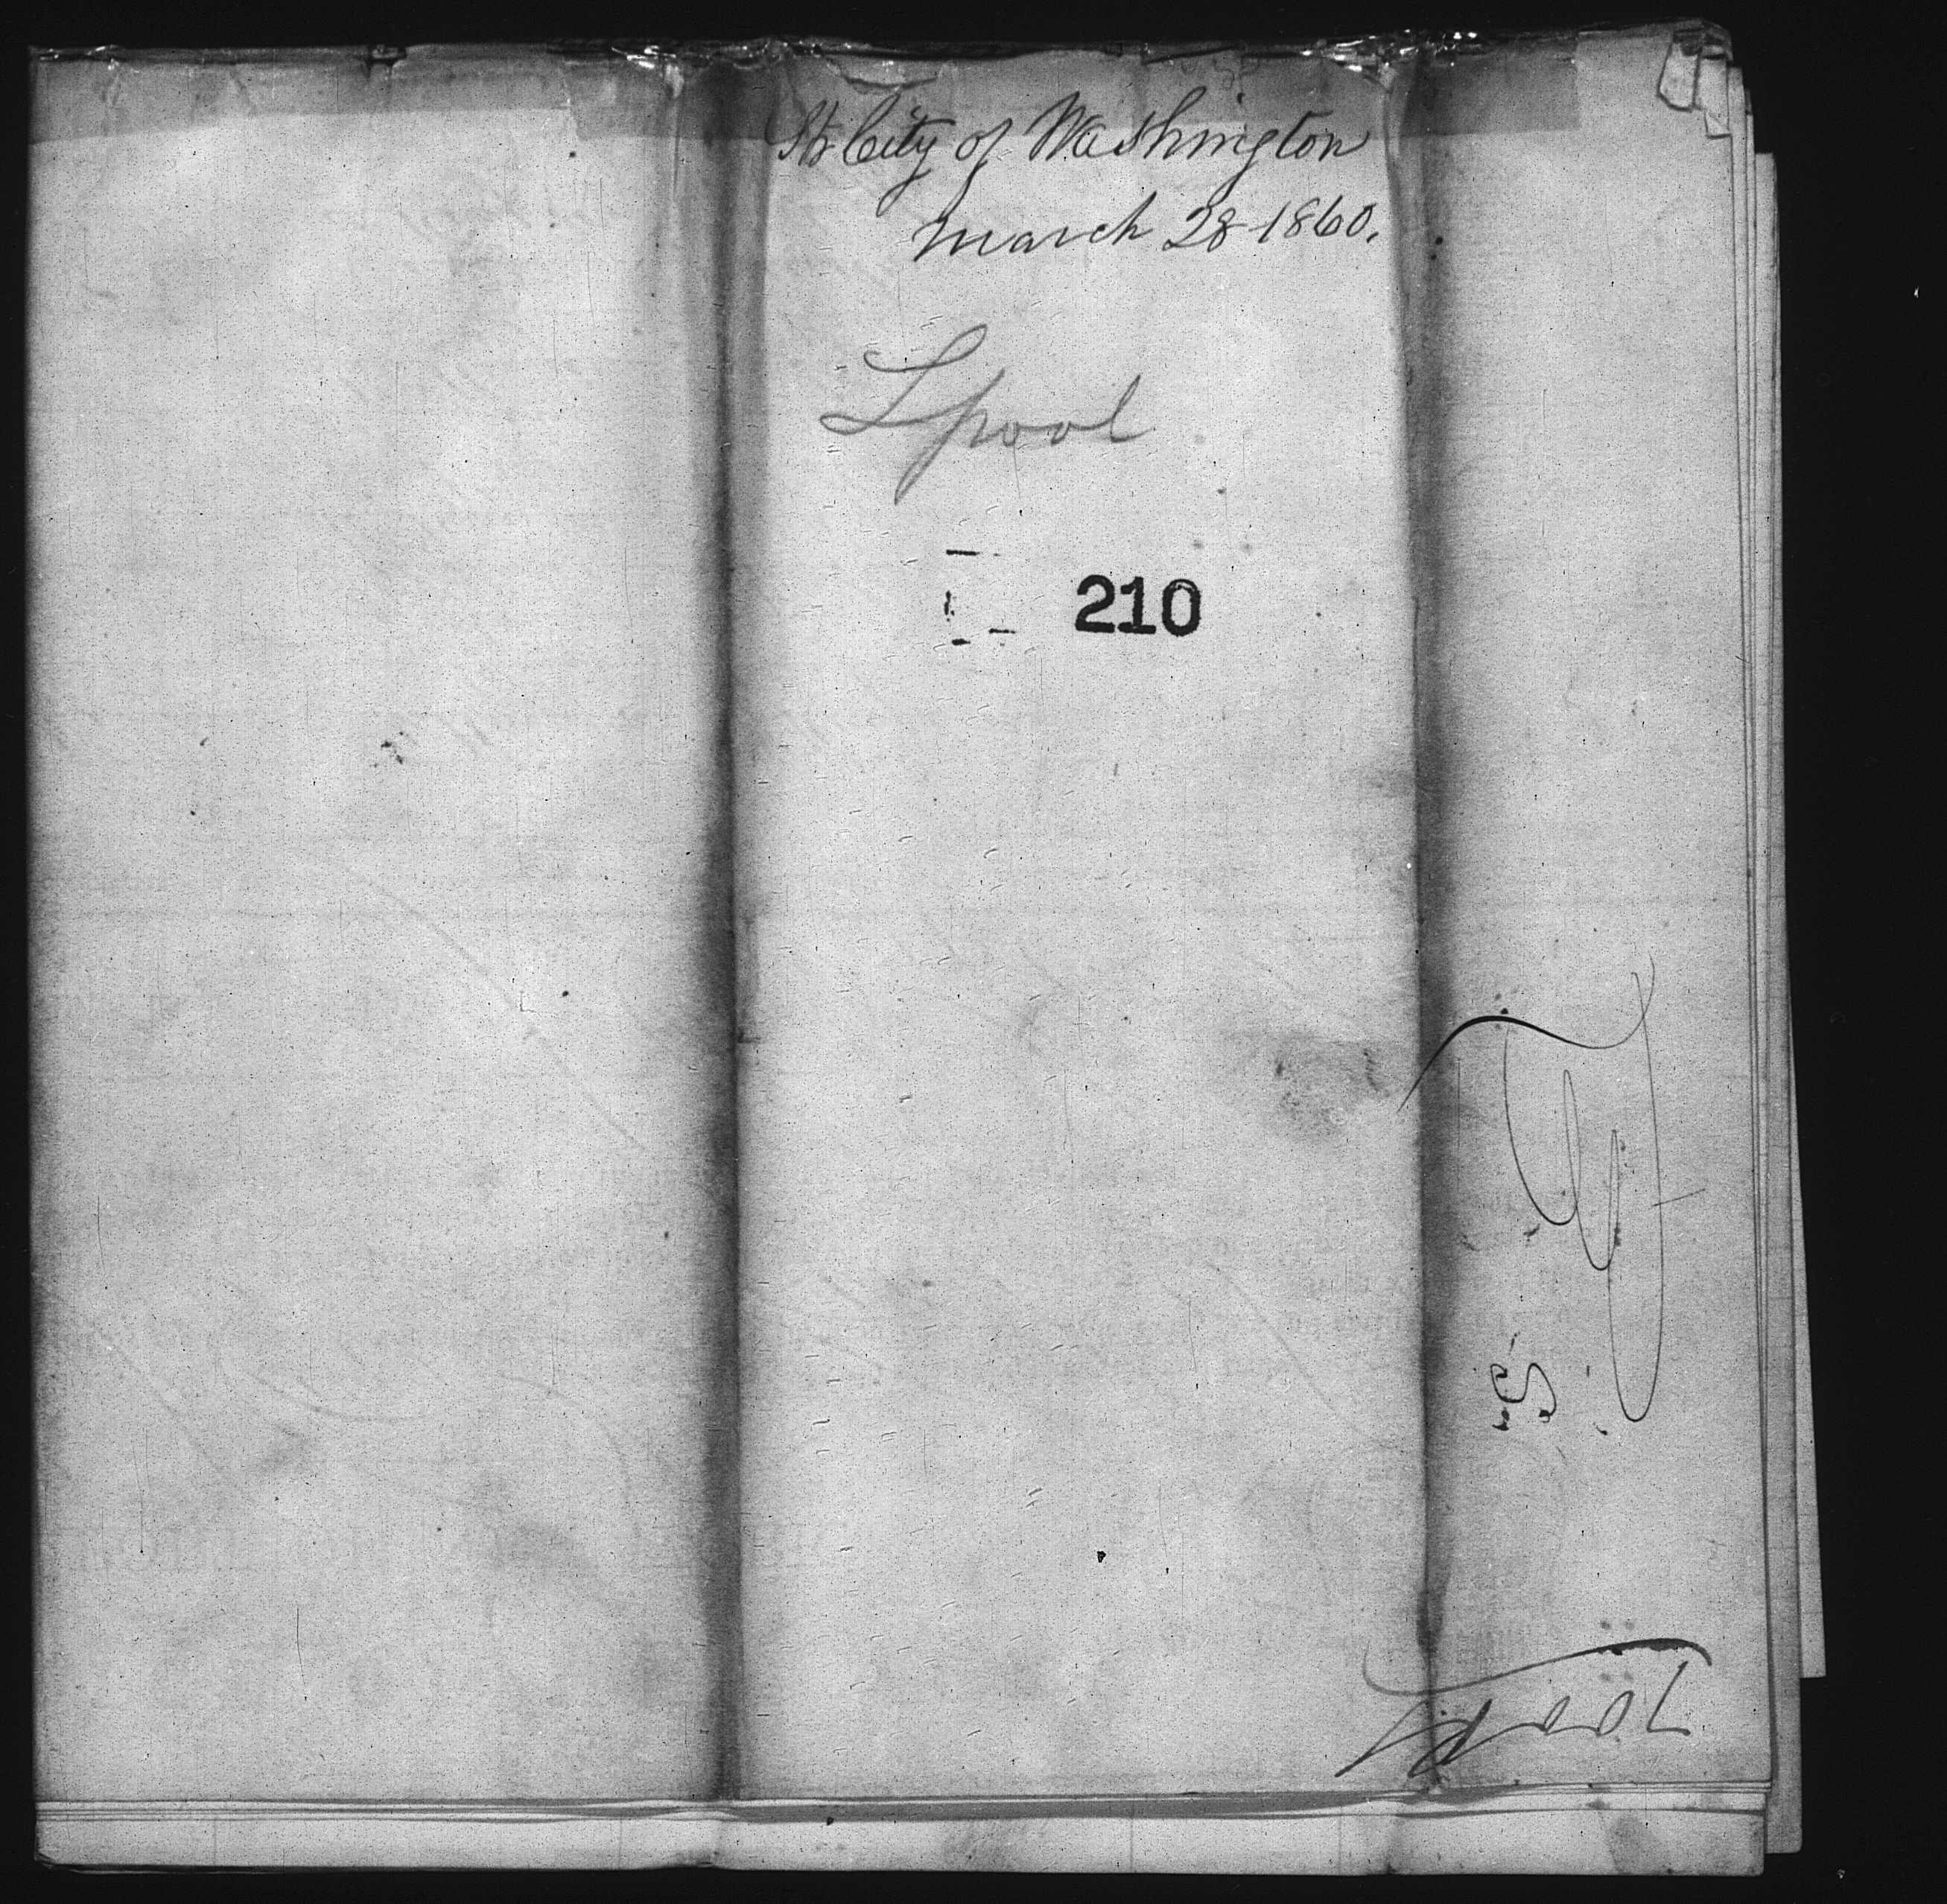 Str City of Washington
March 28-1860.
Lpool
210